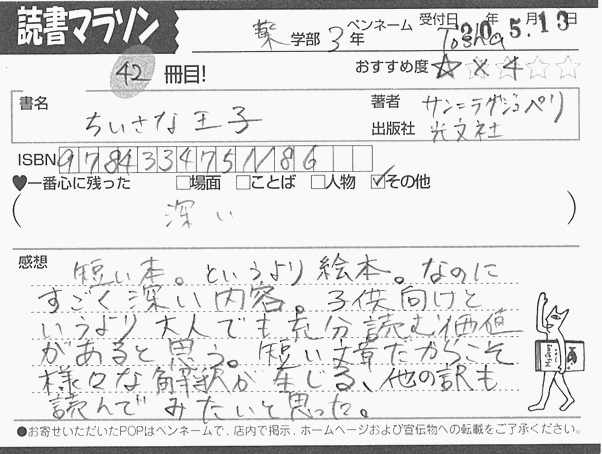 読書マラソン
薬 学部 3年
ペンネーム Tosha
受付日 20年 5月 13日
42 冊目!
おすすめ度 ☆☆☆☆☆
書名 ちいさな王子
著者 サン=テグジュペリ
出版社 光文社
ISBN 9784334751186
♥一番心に残った □場面 □ことば □人物 ☑その他
( 深い )
感想
短い本。というより絵本。なのに
すごく深い内容。子供向けと
いうより大人でも充分読む価値
があると思う。短い文章だからこそ
様々な解釈が生じる、他の訳も
読んでみたいと思った。
●お寄せいただいたPOPはペンネームで、店内で掲示、ホームページおよび宣伝物への転載をご了承ください。